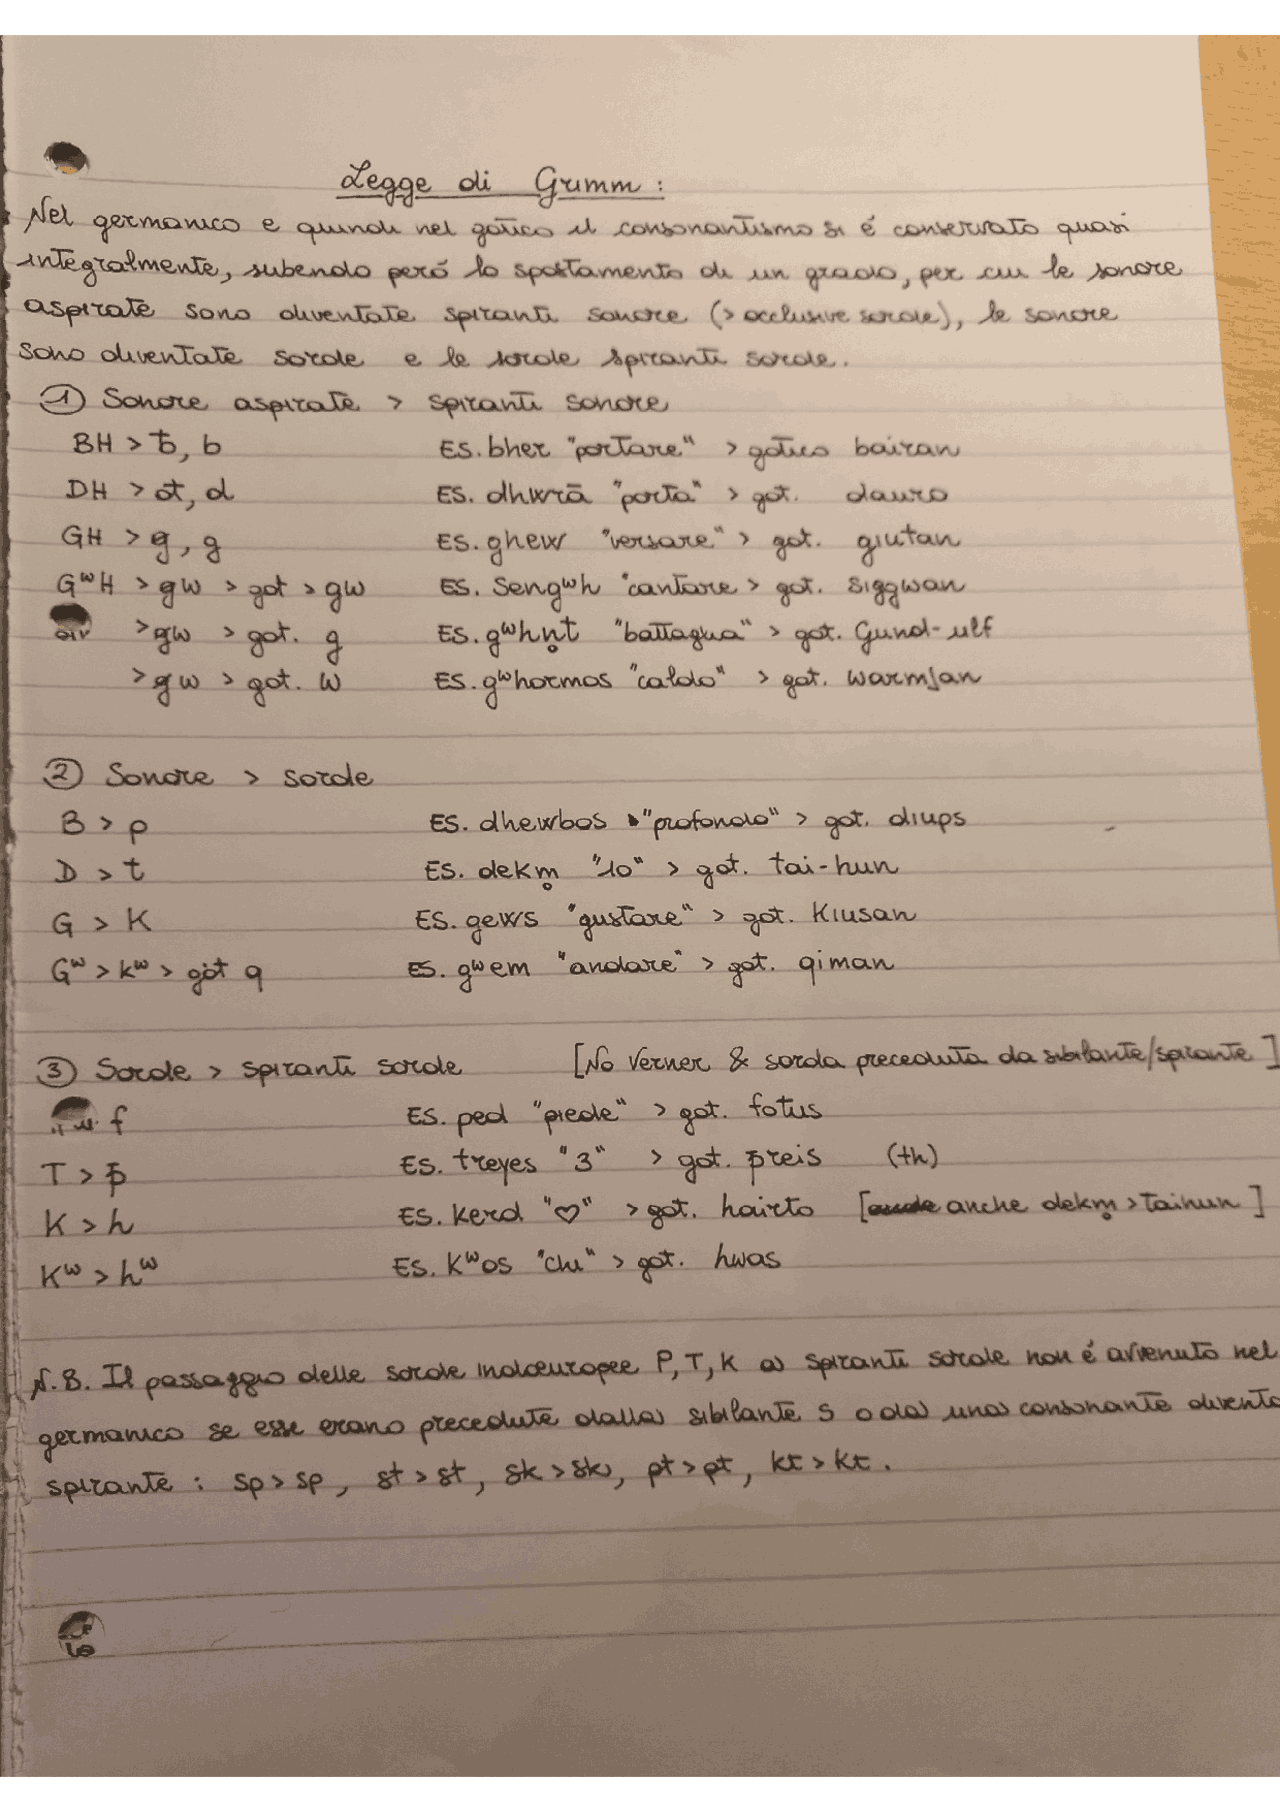 Legge di Grimm :
Nel germanico e quindi nel gotico il consonantismo si é conservato quasi
integralmente, subendo peró lo spostamento di un grado, per cui le sonore
aspirate sono diventate spiranti sonore (> occlusive sorde), le sonore
sono diventate sorde e le sorde spiranti sorde.
① Sonore aspirate > spiranti sonore
BH > ƀ, b ES. bher "portare" > gotico bairan
DH > đ, d ES. dhwrā "porta" > got. dauro
GH > ǥ, g ES. ghew "versare" > got. giutan
GʷH > ǥw > got > gw ES. Sengʷh "cantare > got. siggwan
> ǥw > got. g ES. gʷhn̥t "battaglia" > got. Gund-ulf
> ǥw > got. w ES. gʷhormos "caldo" > got. warmjan
② Sonore > sorde
B > p ES. dhewbos "profondo" > got. diups
D > t ES. dekm̥ "10" > got. tai-hun
G > K ES. gews "gustare" > got. Kiusan
Gʷ > kʷ > got q ES. gʷem "andare" > got. qiman
③ Sorde > spiranti sorde [No Verner & sorda preceduta da sibilante/spirante]
f ES. ped "piede" > got. fotus
T > þ ES. treyes "3" > got. þreis (th)
K > h ES. Kerd "♡" > got. hairto [anche dekm̥ > taihun]
Kʷ > hʷ ES. Kʷos "chi" > got. hwas
N.B. Il passaggio delle sorde indoeuropee P, T, K a spiranti sorde non é avvenuto nel
germanico se esse erano precedute dalla sibilante s o da una consonante diventa
spirante : sp > sp, st > st, sk > sk, pt > pt, kt > kt.